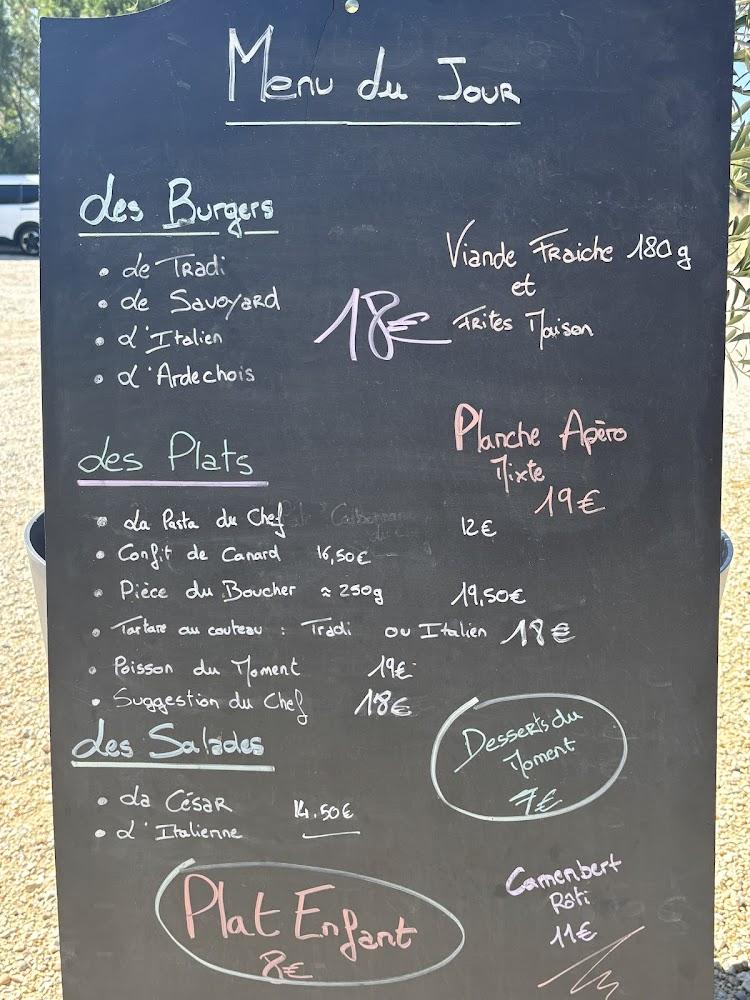 Menu du Jour
Les Burgers
• Le Tradi
• Le Savoyard
• L'Italien
• L'Ardechois
18€
Viande Fraiche 180g
et
Frites Maison
Planche Apéro
Mixte
19€
Les Plats
• La Pasta du Chef 12€
• Confit de Canard 16,50€
• Pièce du Boucher ≈ 250g 19,50€
• Tartare au couteau : Tradi ou Italien 18€
• Poisson du Moment 19€
• Suggestion du Chef 18€
Les Salades
• La César 14.50€
• L'Italienne
Desserts du
Moment
7€
Plat Enfant
8€
Camembert
Rôti
11€